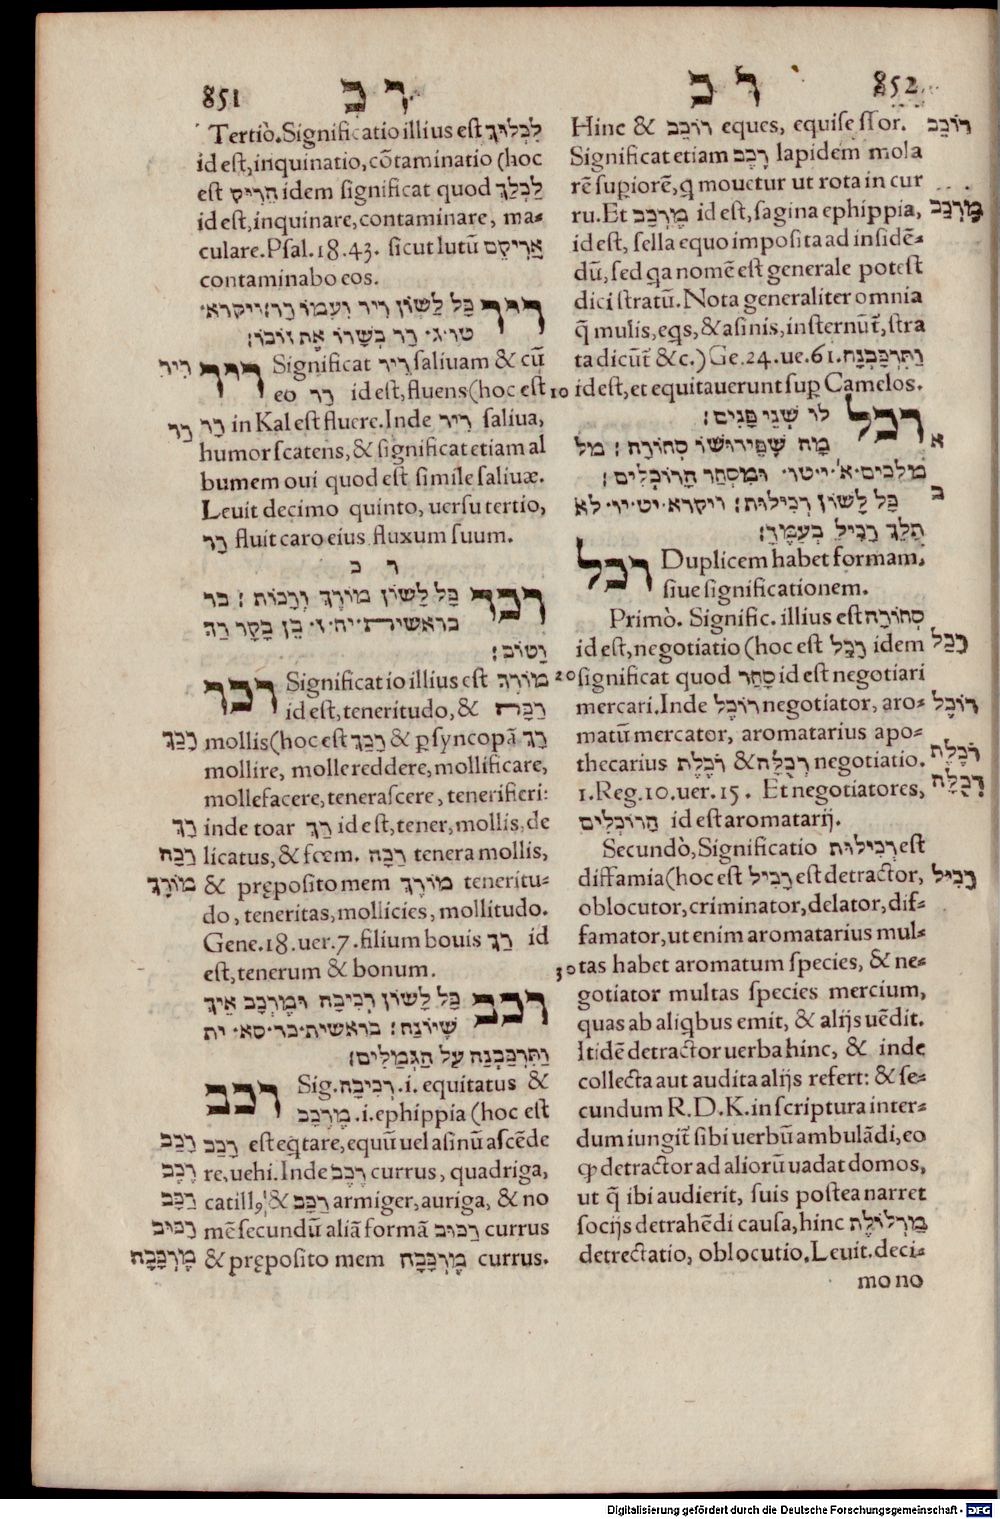 851 רכ
Tertiò. Significatio illius est לִכְלוּךְ
id est, inquinatio, cōtaminatio (hoc
est הֵרִיק idem significat quod לִכְלֵךְ
id est, inquinare, contaminare, ma-
culare. Psal. 18. 43. sicut lutū אֲרִיקֵם
contaminabo eos.
ריר כָּל לְשׁוֹן רִיר וְעִמּוֹ רָר: ויקרא·
טו·ג· רָר בְּשָׂרוֹ אֶת זוֹבוֹ:
רִיר
ריר Significat רִיר saliuam & cū
eo רָר id est, fluens (hoc est
רָר
רָר in Kal est fluere. Inde רִיר saliua,
humor scatens, & significat etiam al
bumem oui quod est simile saliuæ.
Leuit decimo quinto, uersu tertio,
רָר fluit caro eius fluxum suum.
ר כ
רכך כָּל לְשׁוֹן מוֹרֶךְ וְרַכּוֹת: כר
בראשית·יח·ז· בֶּן בָּקָר רַךְ
וָטוֹב:
רכך Significatio illius est מוֹרֶךְ
id est, teneritudo, & רַכָּה
רָכַךְ
mollis (hoc est רָכַךְ & p syncopā רַךְ
mollire, molle reddere, mollificare,
mollefacere, tenerascere, tenerifieri:
רַךְ
inde toar רַךְ id est, tener, mollis, de
רַכָּה
licatus, & fœm. רַכָּה tenera mollis,
מוֹרֶךְ
& pręposito mem מוֹרֶךְ teneritu-
do, teneritas, mollicies, mollitudo.
Gene. 18. uer. 7. filium bouis רַךְ id
est, tenerum & bonum.
רכב כָּל לְשׁוֹן רְכִיבָה וּמֶרְכָּב אֵיךְ
שֶׁיִּהְיֶה: בראשית·כד·סא· ות
וַתִּרְכַּבְנָה עַל הַגְּמַלִּים:
רכב Sig. רְכִיבָה .i. equitatus &
מֶרְכָּב .i. ephippia (hoc est
רָכַב
רָכַב est eq̄tare, equū uel asinū ascēde
רֶכֶב
re, uehi. Inde רֶכֶב currus, quadriga,
רַכָּב
catill9, & רַכָּב armiger, auriga, & no
רְכוּב
mē secundū aliā formā רְכוּב currus
מֶרְכָּבָה
& pręposito mem מֶרְכָּבָה currus.
רכ 852
Hinc & רוֹכֵב eques, equisessor.
רוֹכֵב
Significat etiam רֶכֶב lapidem mola
rē supiorē, q̄ mouetur ut rota in cur
ru. Et מֶרְכָּב id est, sagina ephippia,
מֶרְכָּב
id est, sella equo imposita ad insidē-
dū, sed qa nomē est generale potest
dici stratū. Nota generaliter omnia
q̄ mulis, eqs, & asinis, insternūt, stra
ta dicūt & c.) Ge. 24. ue. 61. וַתִּרְכַּבְנָה
10 id est, et equitauerunt sup Camelos.
רכל לוֹ שְׁנֵי פָנִים:
א
מָה שֶׁפֵּירוּשׁוֹ סְחוֹרָה: מל
מלכים·א׳·י·טו· וּמִסְחַר הָרוֹכְלִים:
ב
כָּל לְשׁוֹן רְכִילוּת: ויקרא·יט·יו· לֹא
תֵלֵךְ רָכִיל בְּעַמֶּךָ:
רכל Duplicem habet formam,
siue significationem.
Primò. Signific. illius est סְחוֹרָה
id est, negotiatio (hoc est רָכַל idem
רָכַל
20 significat quod סָחַר id est negotiari
mercari. Inde רוֹכֵל negotiator, aro-
רוֹכֵל
matū mercator, aromatarius apo-
thecarius רֹכֶלֶת & רְכֻלָּה negotiatio.
רֹכֶלֶת
1. Reg. 10. uer. 15. Et negotiatores,
רְכֻלָּה
הָרוֹכְלִים id est aromatarij.
Secundò, Significatio רְכִילוּת est
diffamia (hoc est רָכִיל est detractor,
רָכִיל
oblocutor, criminator, delator, dif-
famator, ut enim aromatarius mul-
30 tas habet aromatum species, & ne-
gotiator multas species mercium,
quas ab aliqbus emit, & alijs uēdit.
Itidē detractor uerba hinc, & inde
collecta aut audita alijs refert: & se-
cundum R. D. K. in scriptura inter-
dum iungit sibi uerbū ambulādi, eo
ꝙ detractor ad aliorū uadat domos,
ut q̄ ibi audierit, suis postea narret
socijs detrahēdi causa, hinc
detrectatio, oblocutio. Leuit. deci-
mo no
Digitalisierung gefördert durch die Deutsche Forschungsgemeinschaft - DFG